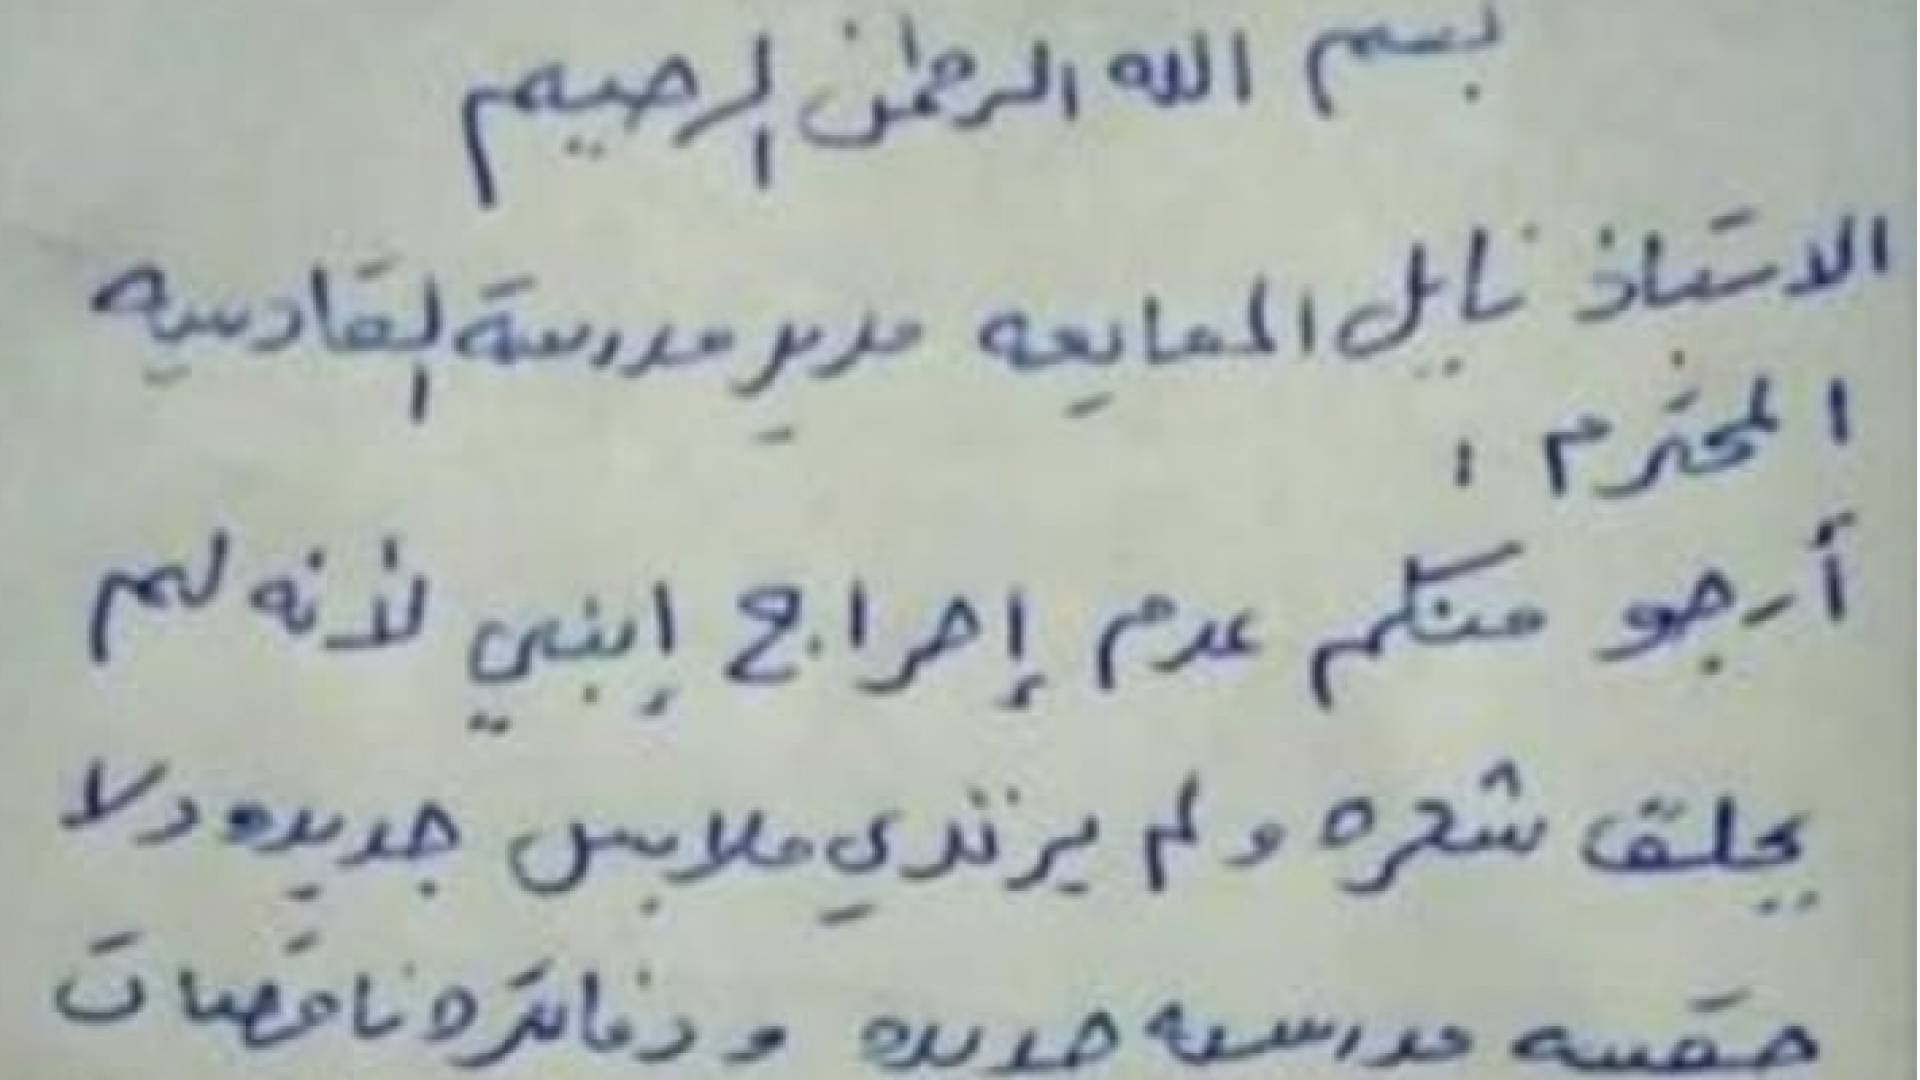 بسم الله الرحمن الرحيم
الاستاذ نايل المعايعه مدير مدرسة القادسيه
المحترم :
أرجو منكم عدم إحراج إبني لأنه لم
يحلق شعره ولم يرتدي ملابس جديده ولا
حقيبه مدرسيه جديده ودفاتره ناقصات